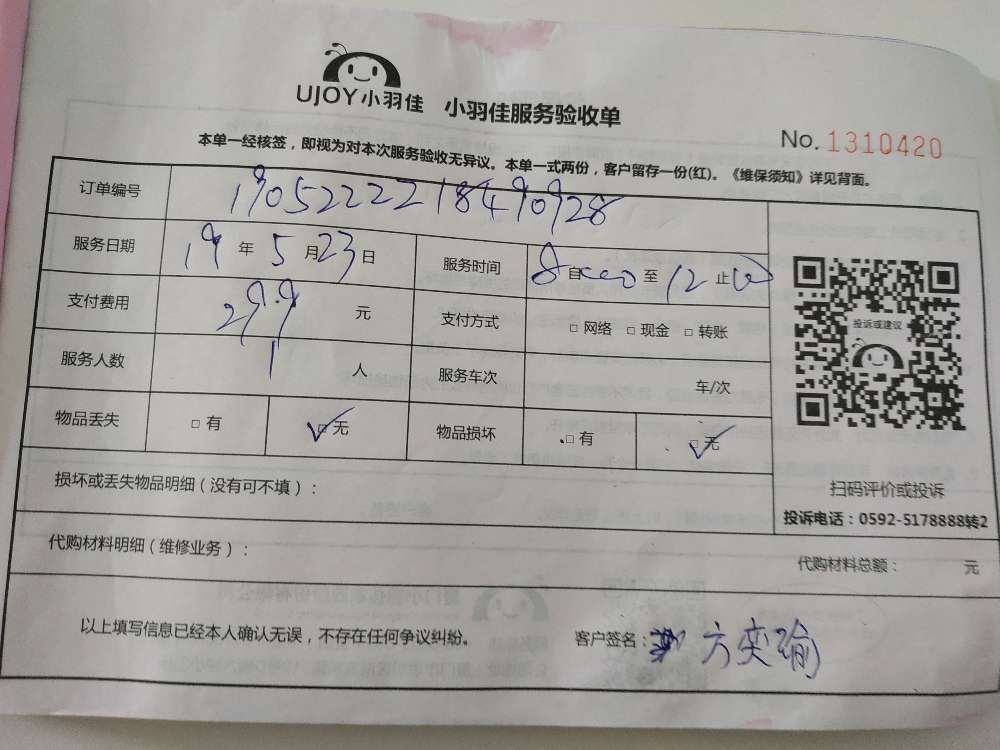 UJOY小羽佳 小羽佳服务验收单
No. 1310420
本单一经核签，即视为对本次服务验收无异议。本单一式两份，客户留存一份(红)。《维保须知》详见背面。
订单编号 190522221848490928
服务日期 19 年 5 月 23 日 服务时间 8 自 至 12 止
支付费用 299 元 支付方式 □ 网络 □ 现金 □ 转账
服务人数 1 人 服务车次 车/次
物品丢失 □ 有 ☑ 无 物品损坏 □ 有 ☑ 无
投诉或建议
扫码评价或投诉
投诉电话：0592-5178888转2
损坏或丢失物品明细（没有可不填）：
代购材料明细（维修业务）： 代购材料总额： 元
以上填写信息已经本人确认无误，不存在任何争议纠纷。 客户签名： 方奕瑜